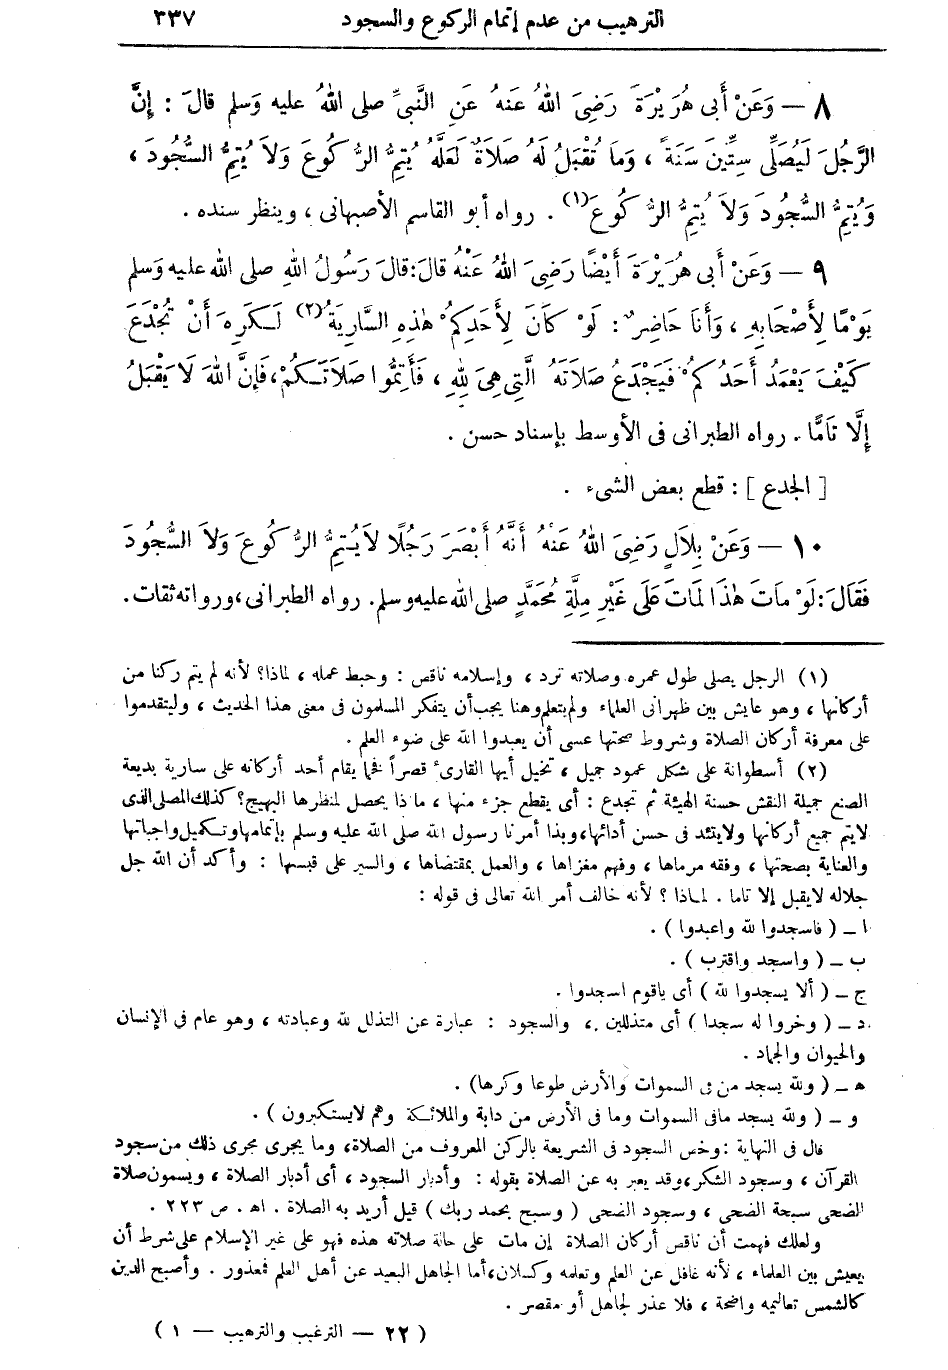 الترهيب من عدم إتمام الركوع والسجود ٣٣٧
٨ — وَعَنْ أَبى هُرَيْرَةَ رَضِىَ اللهُ عَنهُ عَنِ النَّبىِّ صلى اللهُ عليه وَسلم قالَ : إِنَّ
الرَّجُلَ لَيُصَلِّى سِتِّينَ سَنَةً ، وَمَا تُقْبَلُ لَهُ صَلاَةٌ لَعَلَّهُ يُتِمُّ الرُّكُوعَ وَلاَ يُتِمُّ السُّجُودَ ،
وَيُتِمُّ السُّجُودَ وَلاَ يُتِمُّ الرُّكُوعَ (١) . رواه أبو القاسم الأصبهانى ، وينظر سنده .
٩ — وَعَنْ أبى هُرَيْرَةَ أَيْضًا رَضِىَ اللهُ عَنْهُ قالَ : قالَ رَسُولُ اللهِ صلى الله عليه وَسلم
يَوْمًا لِأَصْحَابِهِ ، وَأَنا حَاضِرٌ : لَوْ كَانَ لِأَحَدِكمُ هٰذِهِ السَّارِيَةُ (٢) لَكَرِهَ أَنْ تُجْدَعَ
كَيْفَ يَعْمِدُ أَحَدُكُمْ فَيَجْدَعُ صَلاَتَهُ الَّتِى هِىَ لِلهِ ، فَأَتِمُّوا صَلاَتَكُمْ ، فَإِنَّ اللهَ لاَ يَقْبَلُ
إِلَّا تَامًّا . رواه الطبرانى فى الأوسط بإسناد حسن .
[ الجدع ] : قطع بعض الشىء .
١٠ — وَعَنْ بِلَالٍ رَضِىَ اللهُ عَنْهُ أَنَّهُ أَبْصَرَ رَجُلًا لاَ يُتِمُّ الرُّكُوعَ وَلاَ السُّجُودَ
فَقَالَ : لَوْ مَاتَ هٰذَا لَمَاتَ عَلَى غَيْرِ مِلَّةِ مُحَمَّدٍ صلى الله عليه وسلم . رواه الطبرانى ، ورواته ثقات .
(١) الرجل يصلى طول عمره وصلاته ترد ، وإسلامه ناقص : وحبط عمله ، لماذا؟ لأنه لم يتم ركنا من
أركانها ، وهو عايش بين ظهرانى العلماء ولم يتعلم وهنا يجب أن يتفكر المسلمون فى معنى هذا الحديث ، وليتقدموا
على معرفة أركان الصلاة وشروط صحتها عسى أن يعبدوا الله على ضوء العلم .
(٢) أسطوانة على شكل عمود جميل ، تخيل أيها القارئ قصراً فخما يقام أحد أركانه على سارية بديعة
الصنع جميلة النقش حسنة الهيئة ثم تجدع : أى يقطع جزء منها ، ماذا يحصل لمنظرها البهيج؟ كذلك المصلى الذى
لايتم جميع أركانها ولا يتئد فى حسن أدائها ، وبذا أمرنا رسول الله صلى الله عليه وسلم بإتمامها وتكميل واجباتها
والعناية بصحتها ، وفقه مرماها ، وفهم مغزاها ، والعمل بمقتضاها ، والسير على قبسها : وأكد أن الله جل
جلاله لايقبل إلا تاما . لماذا ؟ لأنه خالف أمر الله تعالى فى قوله :
ا — ( فاسجدوا لله واعبدوا ) .
ب — ( واسجد واقترب ) .
ج — ( ألا يسجدوا لله ) أى ياقوم اسجدوا .
د — ( وخروا له سجدا ) أى متذللين ، والسجود : عبارة عن التذلل لله وعبادته ، وهو عام فى الإنسان
والحيوان والجماد .
ه — ( ولله يسجد من فى السموات والأرض طوعا وكرها) .
و — ( ولله يسجد مافى السموات وما فى الأرض من دابة والملائكة وهم لايستكبرون ) .
قال فى النهاية : وخص السجود فى الشريعة بالركن المعروف من الصلاة ، وما يجرى مجرى ذلك من سجود
القرآن ، وسجود الشكر ، وقد يعبر به عن الصلاة بقوله : وأدبار السجود ، أى أدبار الصلاة ، ويسمون صلاة
الضحى سبحة الضحى ، وسجود الضحى ( وسبح بحمد ربك ) قيل أريد به الصلاة . اهـ . ص ٢٢٣ .
ولعلك فهمت أن ناقص أركان الصلاة إن مات على حالة صلاته هذه فهو على غير الإسلام على شرط أن
يعيش بين العلماء ، لأنه غافل عن العلم وتعلمه وكسلان ، أما الجاهل البعيد عن أهل العلم فمعذور . وأصبح الدين
كالشمس تعاليمه واضحة ، فلا عذر لجاهل أو مقصر .
( ٢٢ — الترغيب والترهيب — ١ )